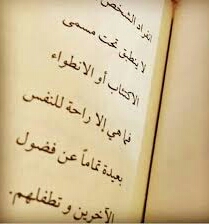 انفراد الشخص
لا ينطبق تحت مسمى
الاكتئاب أو الانطواء
فما هي إلا راحة للنفس
بعيدة تماماً عن فضول
الآخرين و تطفلهم.